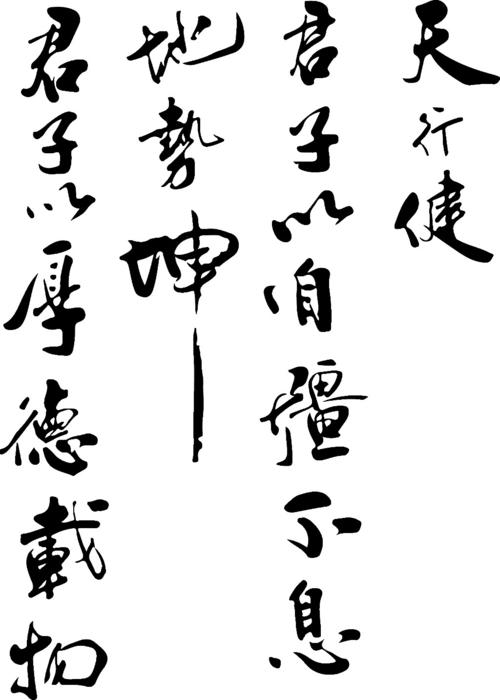 天行健
君子以自彊不息
地勢坤
君子以厚德載物